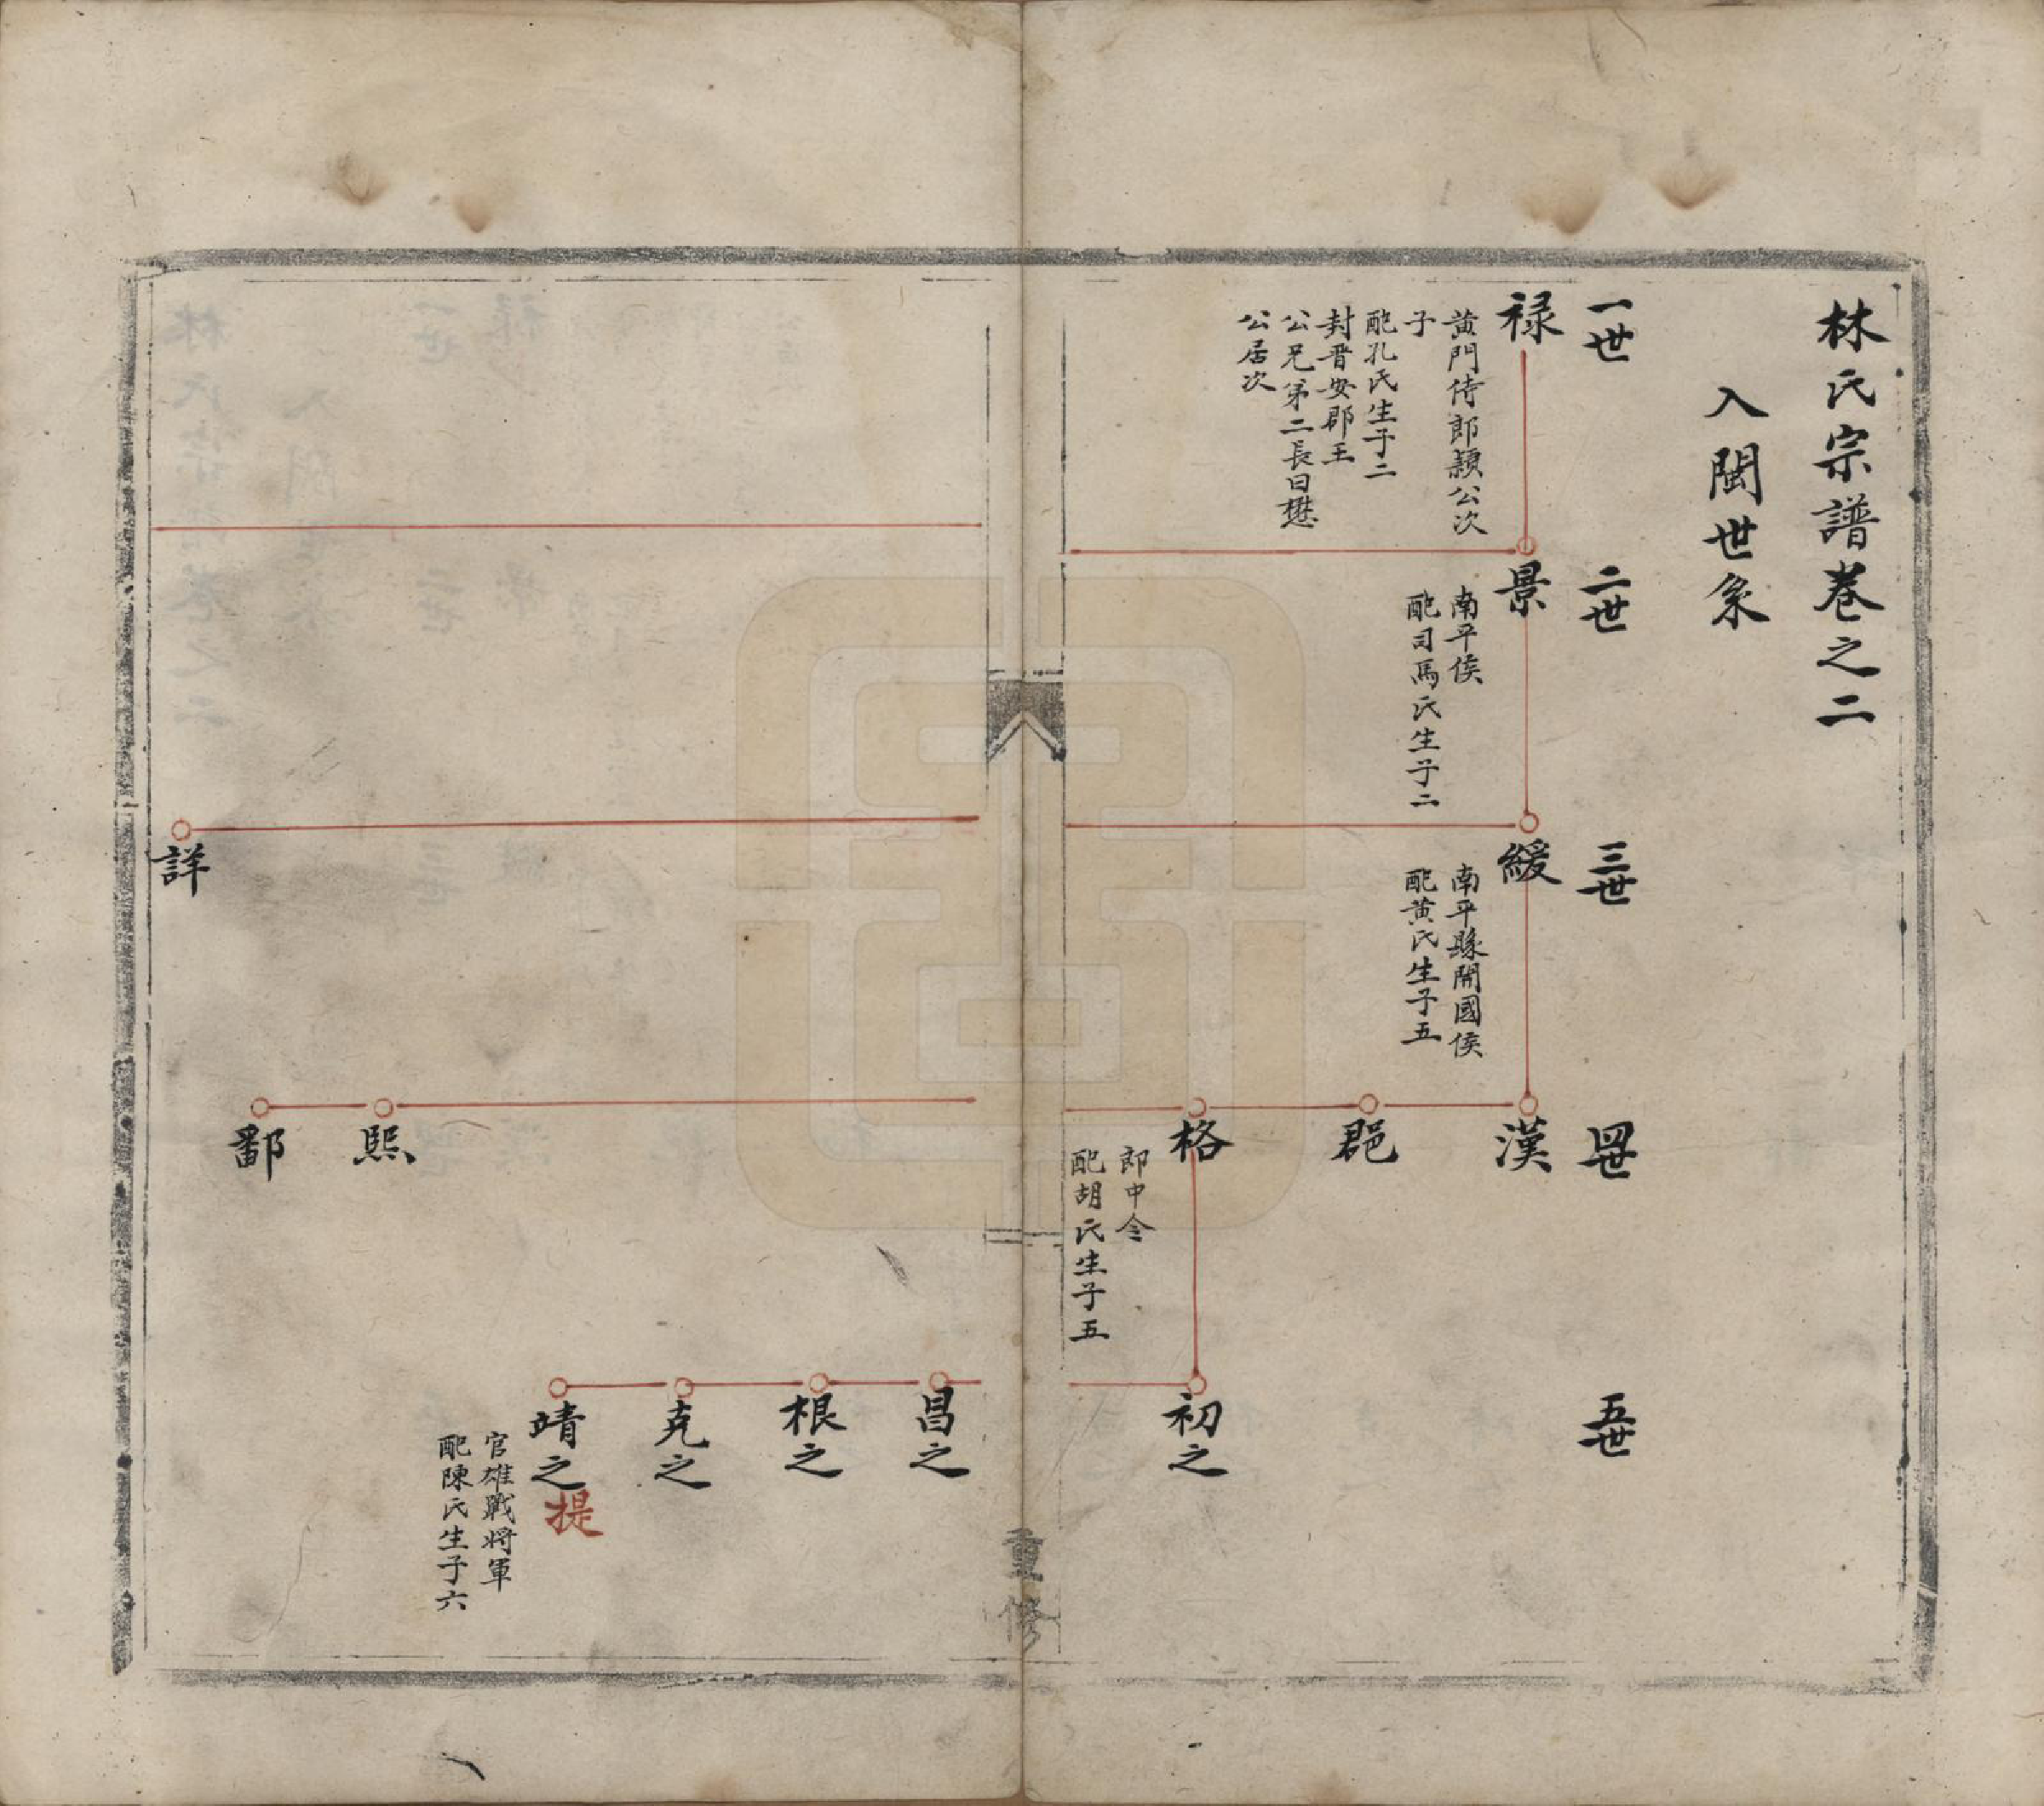 林氏宗譜卷之二
入閩世系
一世
二世
三世
四世
五世
禄
黃門侍郎頴公次
子
配孔氏生子二
封晋安郡王
公兄弟二長曰懋
公居次
景
南平侯
配司馬氏生子二
緩
南平縣開國侯
配黃氏生子五
漢
郡
格
郎中令
配胡氏生子五
初之
重修
昌之
根之
克之
靖之
提
官雄戰將軍
配陳氏生子六
熈
鄱
詳